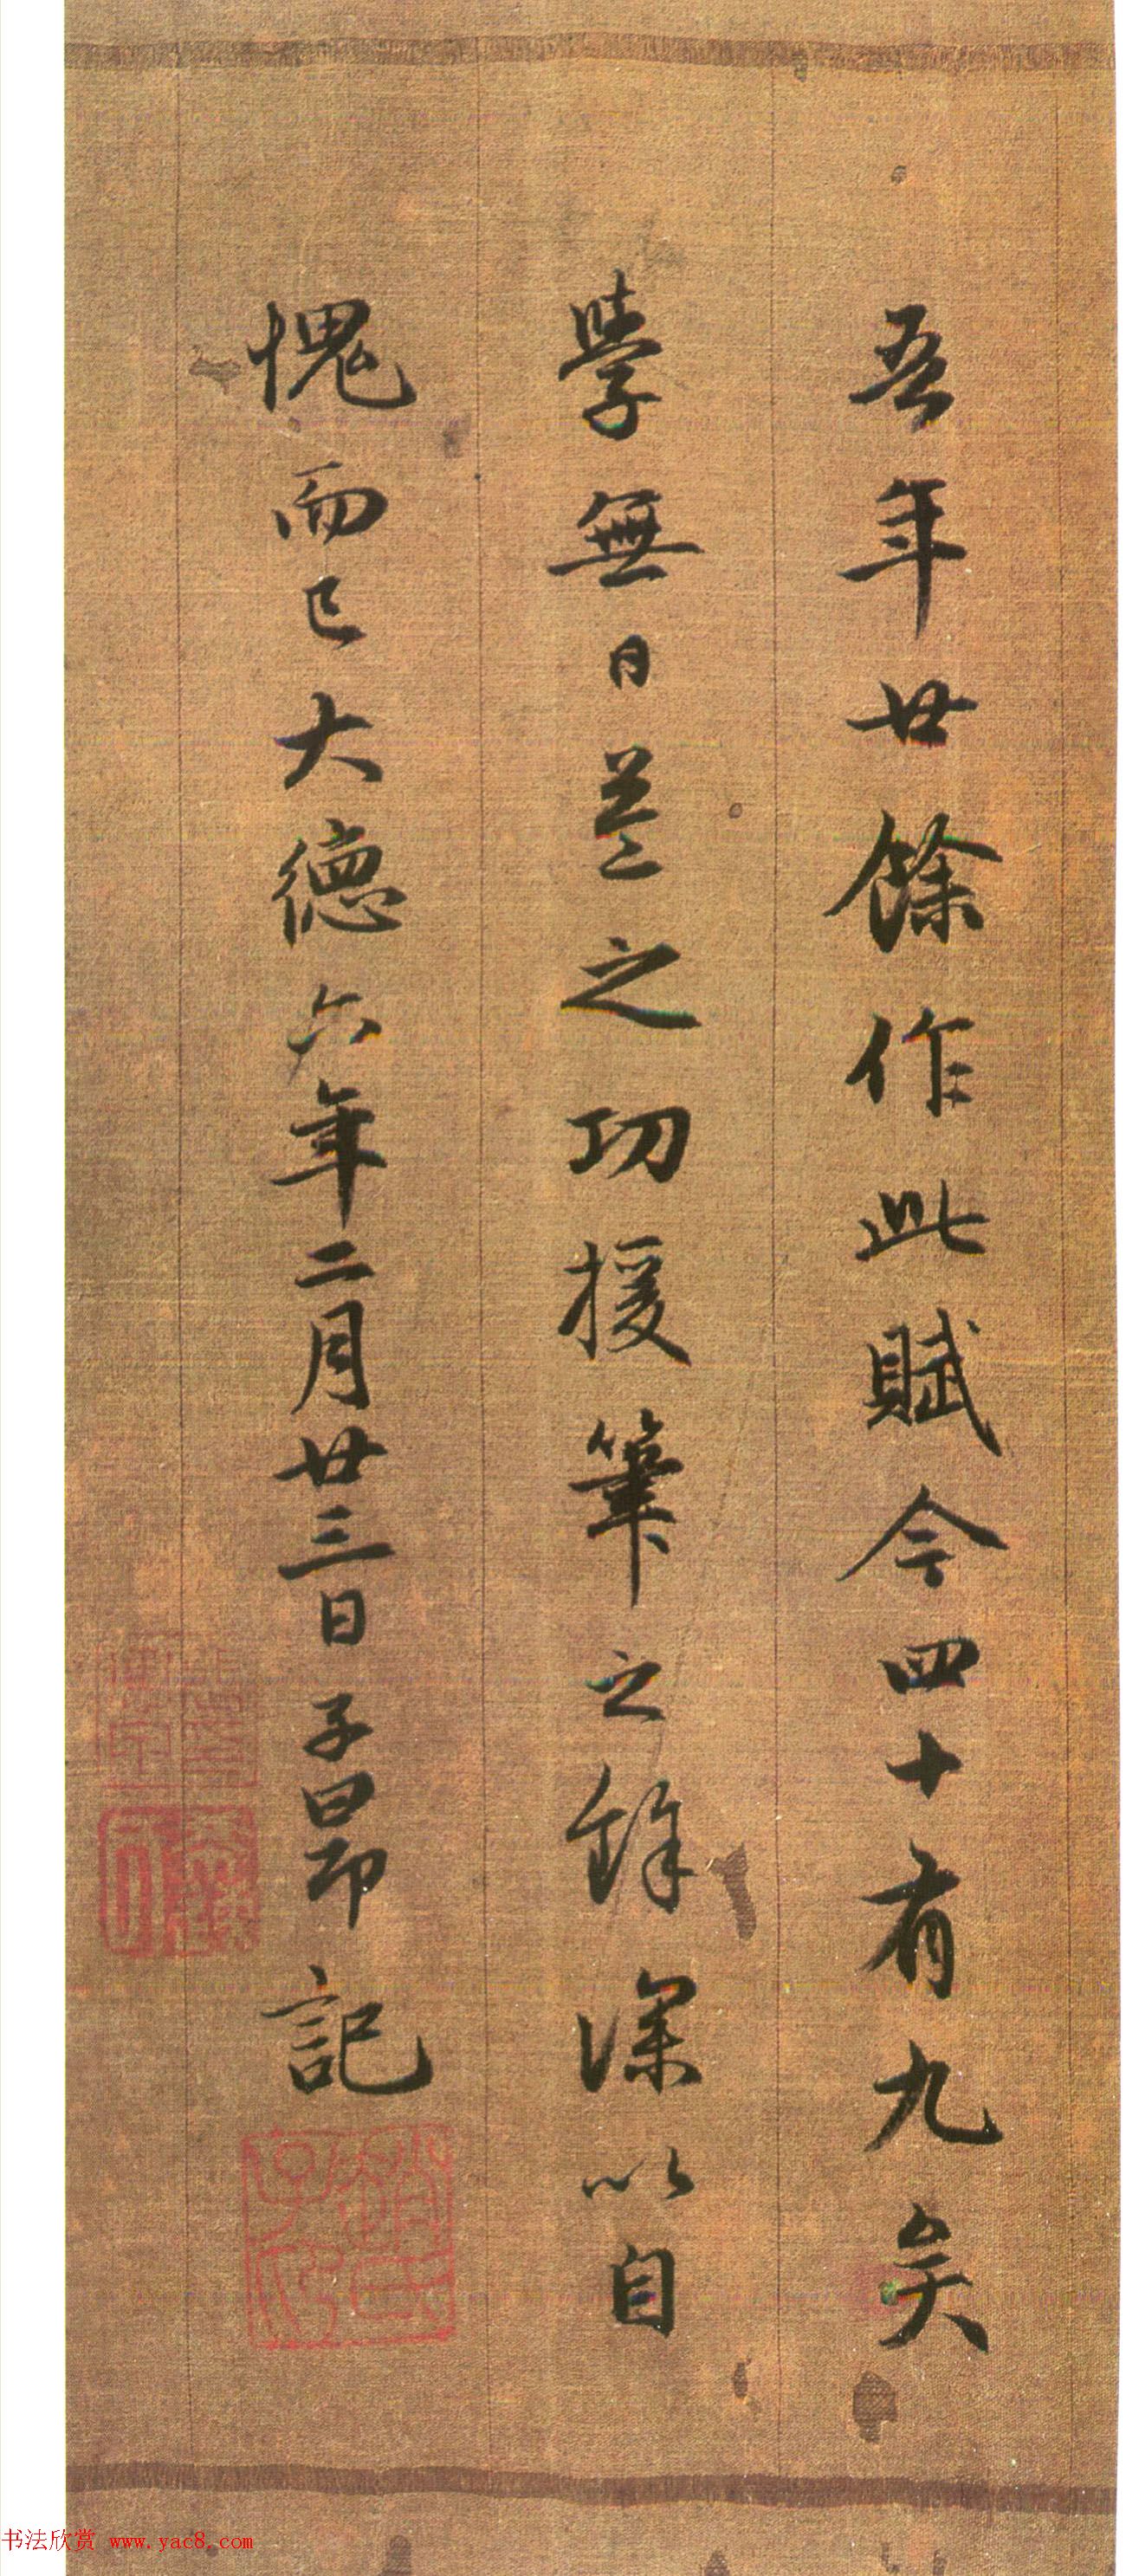 吾年廿餘作此賦今四十有九矣
學無日益之功援筆之餘深以自
愧而已大德六年二月廿三日子昂記
趙氏子昂
书法欣赏 www.yac8.com